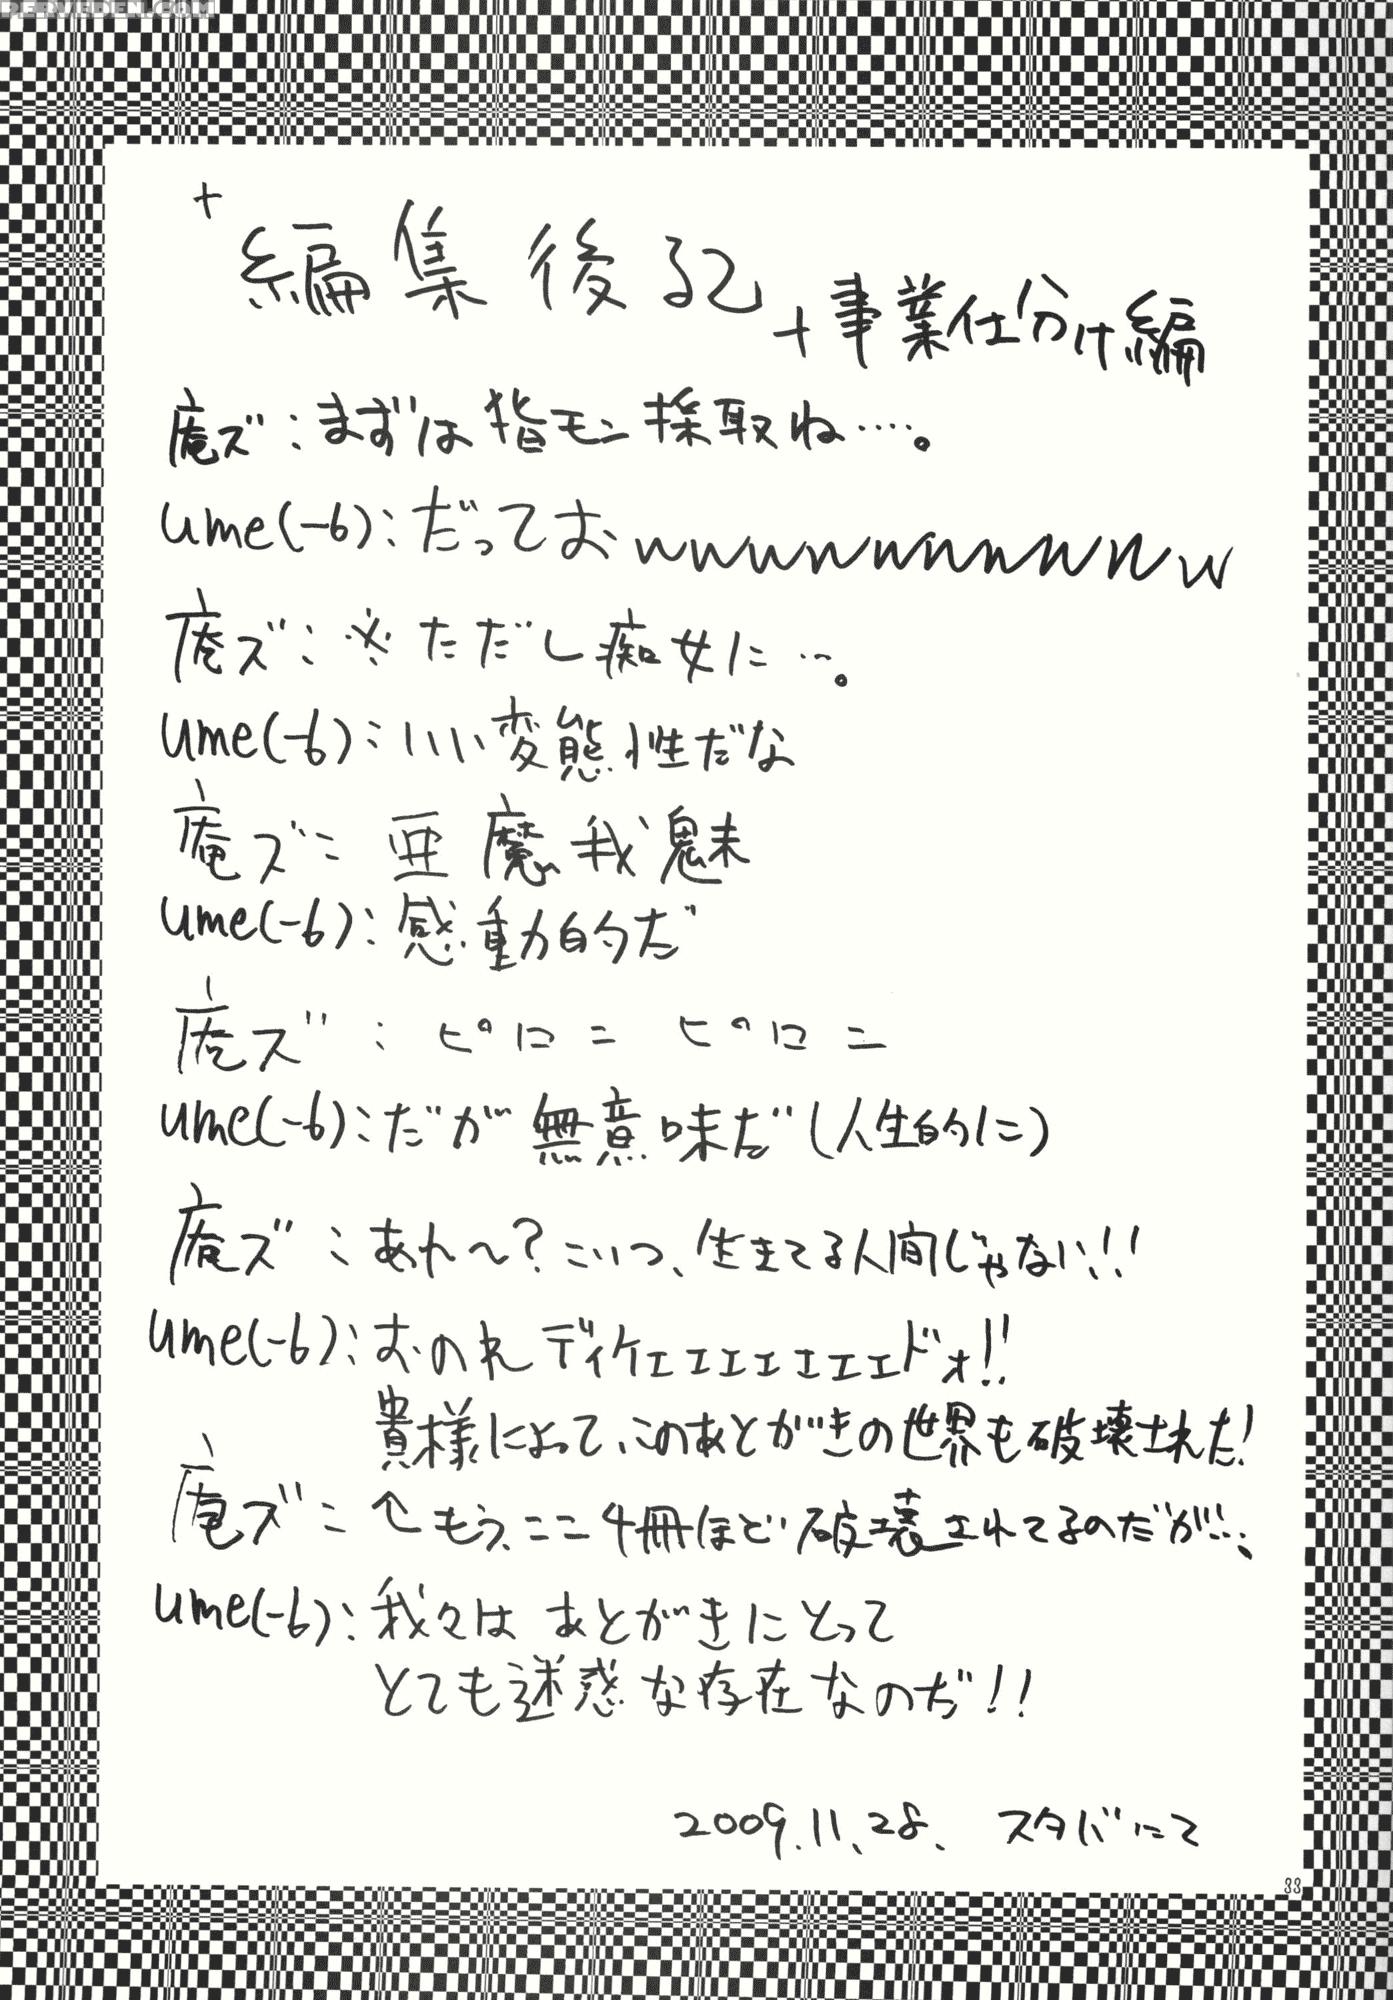 PERVEDEN.COM
+
編集後記
+事業仕分け編
庵ズ:まずは指モン採取ね‥‥。
ume(-6):だっておwwwwwwwwwww
庵ズ:※ただし痴女に…。
ume(-6):いい変態性だな
庵ズ:亜魔我魅
ume(-6):感動的だ
庵ズ:ピロニ ピロニ
ume(-6):だが無意味だ(人生的に)
庵ズ:あれ〜?こいつ、生きてる人間じゃない!!
ume(-6):おのれディケェェェェェェェドォ!!
貴様によって、このあとがきの世界も破壊された!
庵ズ:↑もう、ここ4冊ほど破壊されてるのだが…、
ume(-6):我々はあとがきにとって
とても迷惑な存在なのぢ!!
2009.11.28. スタバにて
33